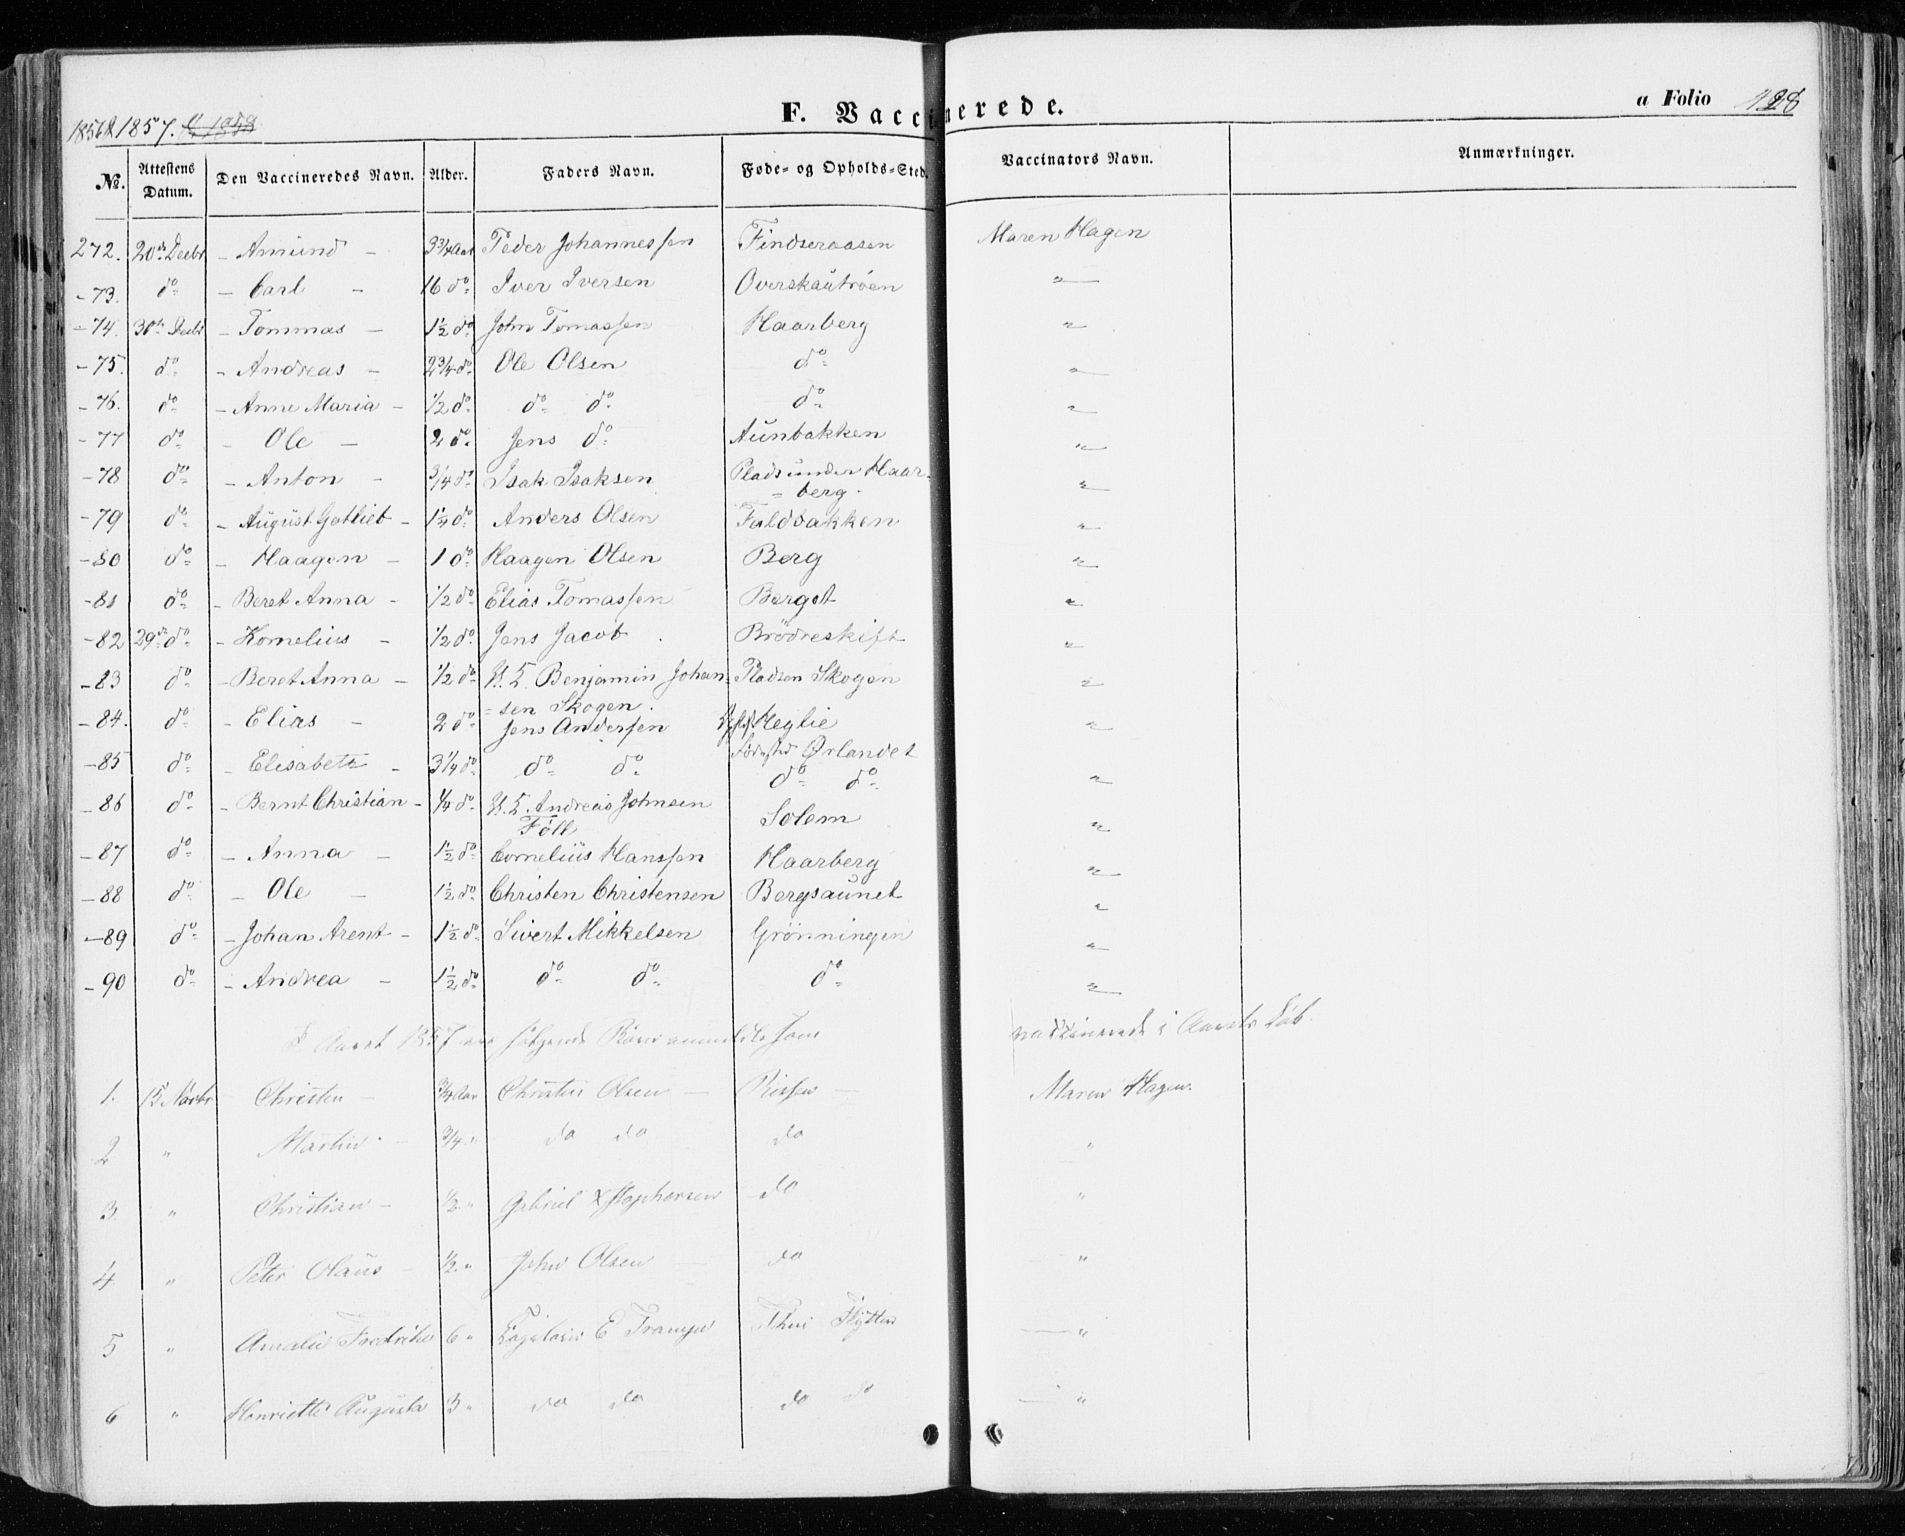 F. Vaccinerede.
a Folio 128
1856 & 1857. & 1858
No. Attestens Datum. Den Vaccineredes Navn. Alder. Faders Navn. Føde- og Opholds-Sted. Vaccinators Navn. Anmærkninger.
272. 20de Decbr - Amund - 3 3/4 Aar Peder Johannessen Findseraasen Maren Hagen
- 73. do - Carl - 16 do Iver Iversen Overskautrøen "
- 74. 30te Decbr - Tommas - 1 1/2 do John Tomassen Haarberg "
- 75. do - Andreas - 2 3/4 do Ole Olsen do "
- 76. do - Anne Maria - 1/2 do do do do "
- 77 do - Ole - 2 do Jens do Aunbakken "
- 78 do - Anton - 3/4 do Isak Isaksen Plads under Haar-
= berg. "
- 79 do - August Gotlieb - 1 1/4 do Anders Olsen Faldbakken "
- 80 do - Haagen - 1 do Haagen Olsen Berg "
- 81 do - Beret Anna - 1/2 do Elias Tomassen Berget "
- 82 29de do - Kornelius - 1/2 do Jens Jacob Brödreskift "
- 83 do - Beret Anna - 1/2 do U. E. Benjamin Johan= Pladsen Skogen "
= sen Skogen.
- 84. do - Elias - 2 do Jens Andersen Heglie "
Fødested Ørlandet
- 85 do - Elisabeth - 3 1/4 do do do do do "
- 86 do - Bernt Christian - 1/4 do U. E. Andreas Johnsen Solem "
Føll
- 87 do - Anna - 1 1/2 do Cornelius Hanssen Haarberg "
- 88 do - Ole - 1 1/2 do Christen Christensen Bergsaunet "
- 89 do - Johan Arent - 1 1/2 do Sivert Mikkelsen Grönningen "
- 90 do - Andrea - 1 1/2 do do do do "
I Aaret 1857 ere følgende Børn anmeldte som vaccinerede i Aarets Løb.
1. 15 Novbr Christen - 3/4 Aar Christen Olsen - Rissen - Maren Hagen.
2 " Martin - 3/4 " do do do "
3 " Christian - 1/2 " Gabriel do "
4 " Peter Olaus - 1/2 " John Olsen do "
5 " Amalie Fredrikke 6 " "
6 " Henriette Augusta 3 " do do do do "